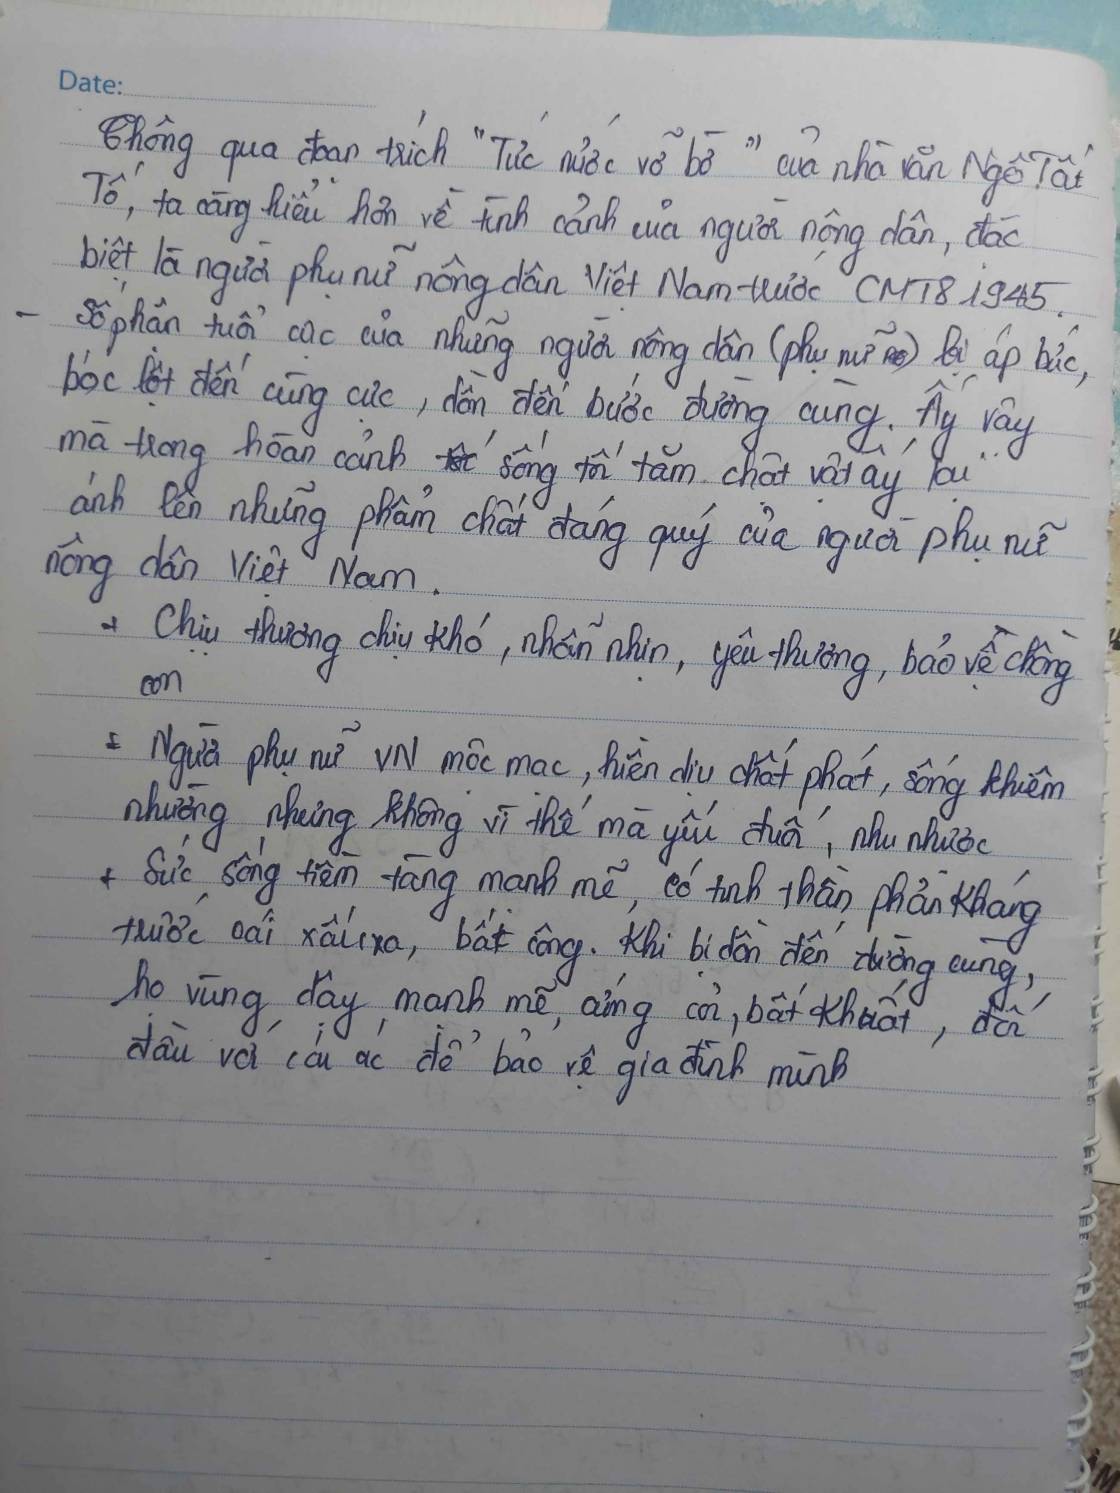 Date:
Thông qua đoạn trích "Tức nước vỡ bờ" của nhà văn Ngô Tất
Tố, ta càng hiểu hơn về tình cảnh của người nông dân, đặc
biệt là người phụ nữ nông dân Việt Nam trước CMT8 1945.
- Số phận tuổi cực của những người nông dân (phụ nữ) bị áp bức,
bóc lột đến cùng cực, dồn đến bước đường cùng. Ấy vậy
mà trong hoàn cảnh sống tối tăm chật vật ấy lại
ánh lên những phẩm chất đáng quý của người phụ nữ
nông dân Việt Nam.
+ Chịu thương chịu khó, nhẫn nhịn, yêu thương, bảo vệ chồng
con
+ Người phụ nữ VN mộc mạc, hiền dịu chất phát, sống khiêm
nhường nhưng không vì thế mà yếu đuối, nhu nhược
+ Sức sống tiềm tàng mạnh mẽ, có tinh thần phản kháng
trước cái xấu xa, bất công. Khi bị dồn đến đường cùng,
họ vùng dậy mạnh mẽ, cứng cỏi, bất khuất, đối
đầu với cái ác để bảo vệ gia đình mình